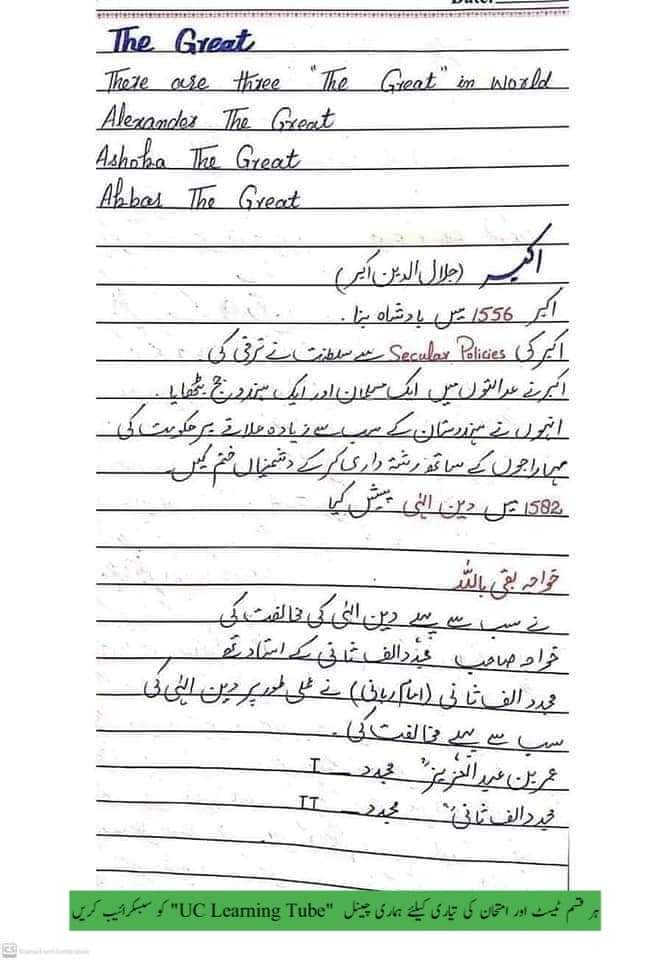 Date:
The Great
There are three "The Great" in World
Alexander The Great
Ashoka The Great
Akbar The Great
اکبر (جلال الدین اکبر)
اکبر 1556 میں بادشاہ بنا۔
اکبر کی Secular Policies سے سلطنت نے ترقی کی۔
اکبر نے عدالتوں میں ایک مسلمان اور ایک ہندو جج بٹھایا۔
انہوں نے ہندوستان کے سب سے زیادہ علاقے پر حکومت کی
مہاراجوں کے ساتھ رشتہ داری کر کے دشمنیاں ختم کیں۔
1582 میں دین الہٰی پیش کیا
خواجہ بقی باللہ
نے سب سے پہلے دین الہٰی کی مخالفت کی
خواجہ صاحب مجدد الف ثانی کے استاد تھے
مجدد الف ثانی (امام ربانی) نے عملی طور پر دین الہٰی کی
سب سے پہلے مخالفت کی۔
عمر بن عبدالعزیز مجدد __ I
مجدد الف ثانی مجدد __ II
ہر قسم ٹیسٹ اور امتحان کی تیاری کیلئے ہماری چینل "UC Learning Tube" کو سبسکرائیب کریں
CS